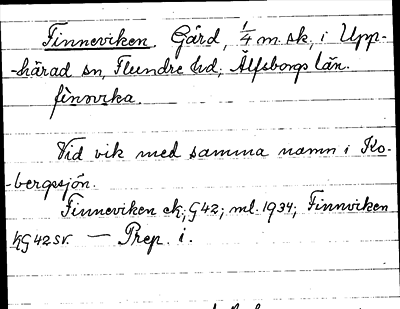 Finneviken. Gård, 1/4 m. sk., i Upp-
-härad sn, Flundre hd, Älfsborgs län.
finovika.
Vid vik med samma namn i Ko-
-bergssjön.
Finneviken ek, G42; ml. 1934; Finnviken
hg 42 sv. — Prep. i.